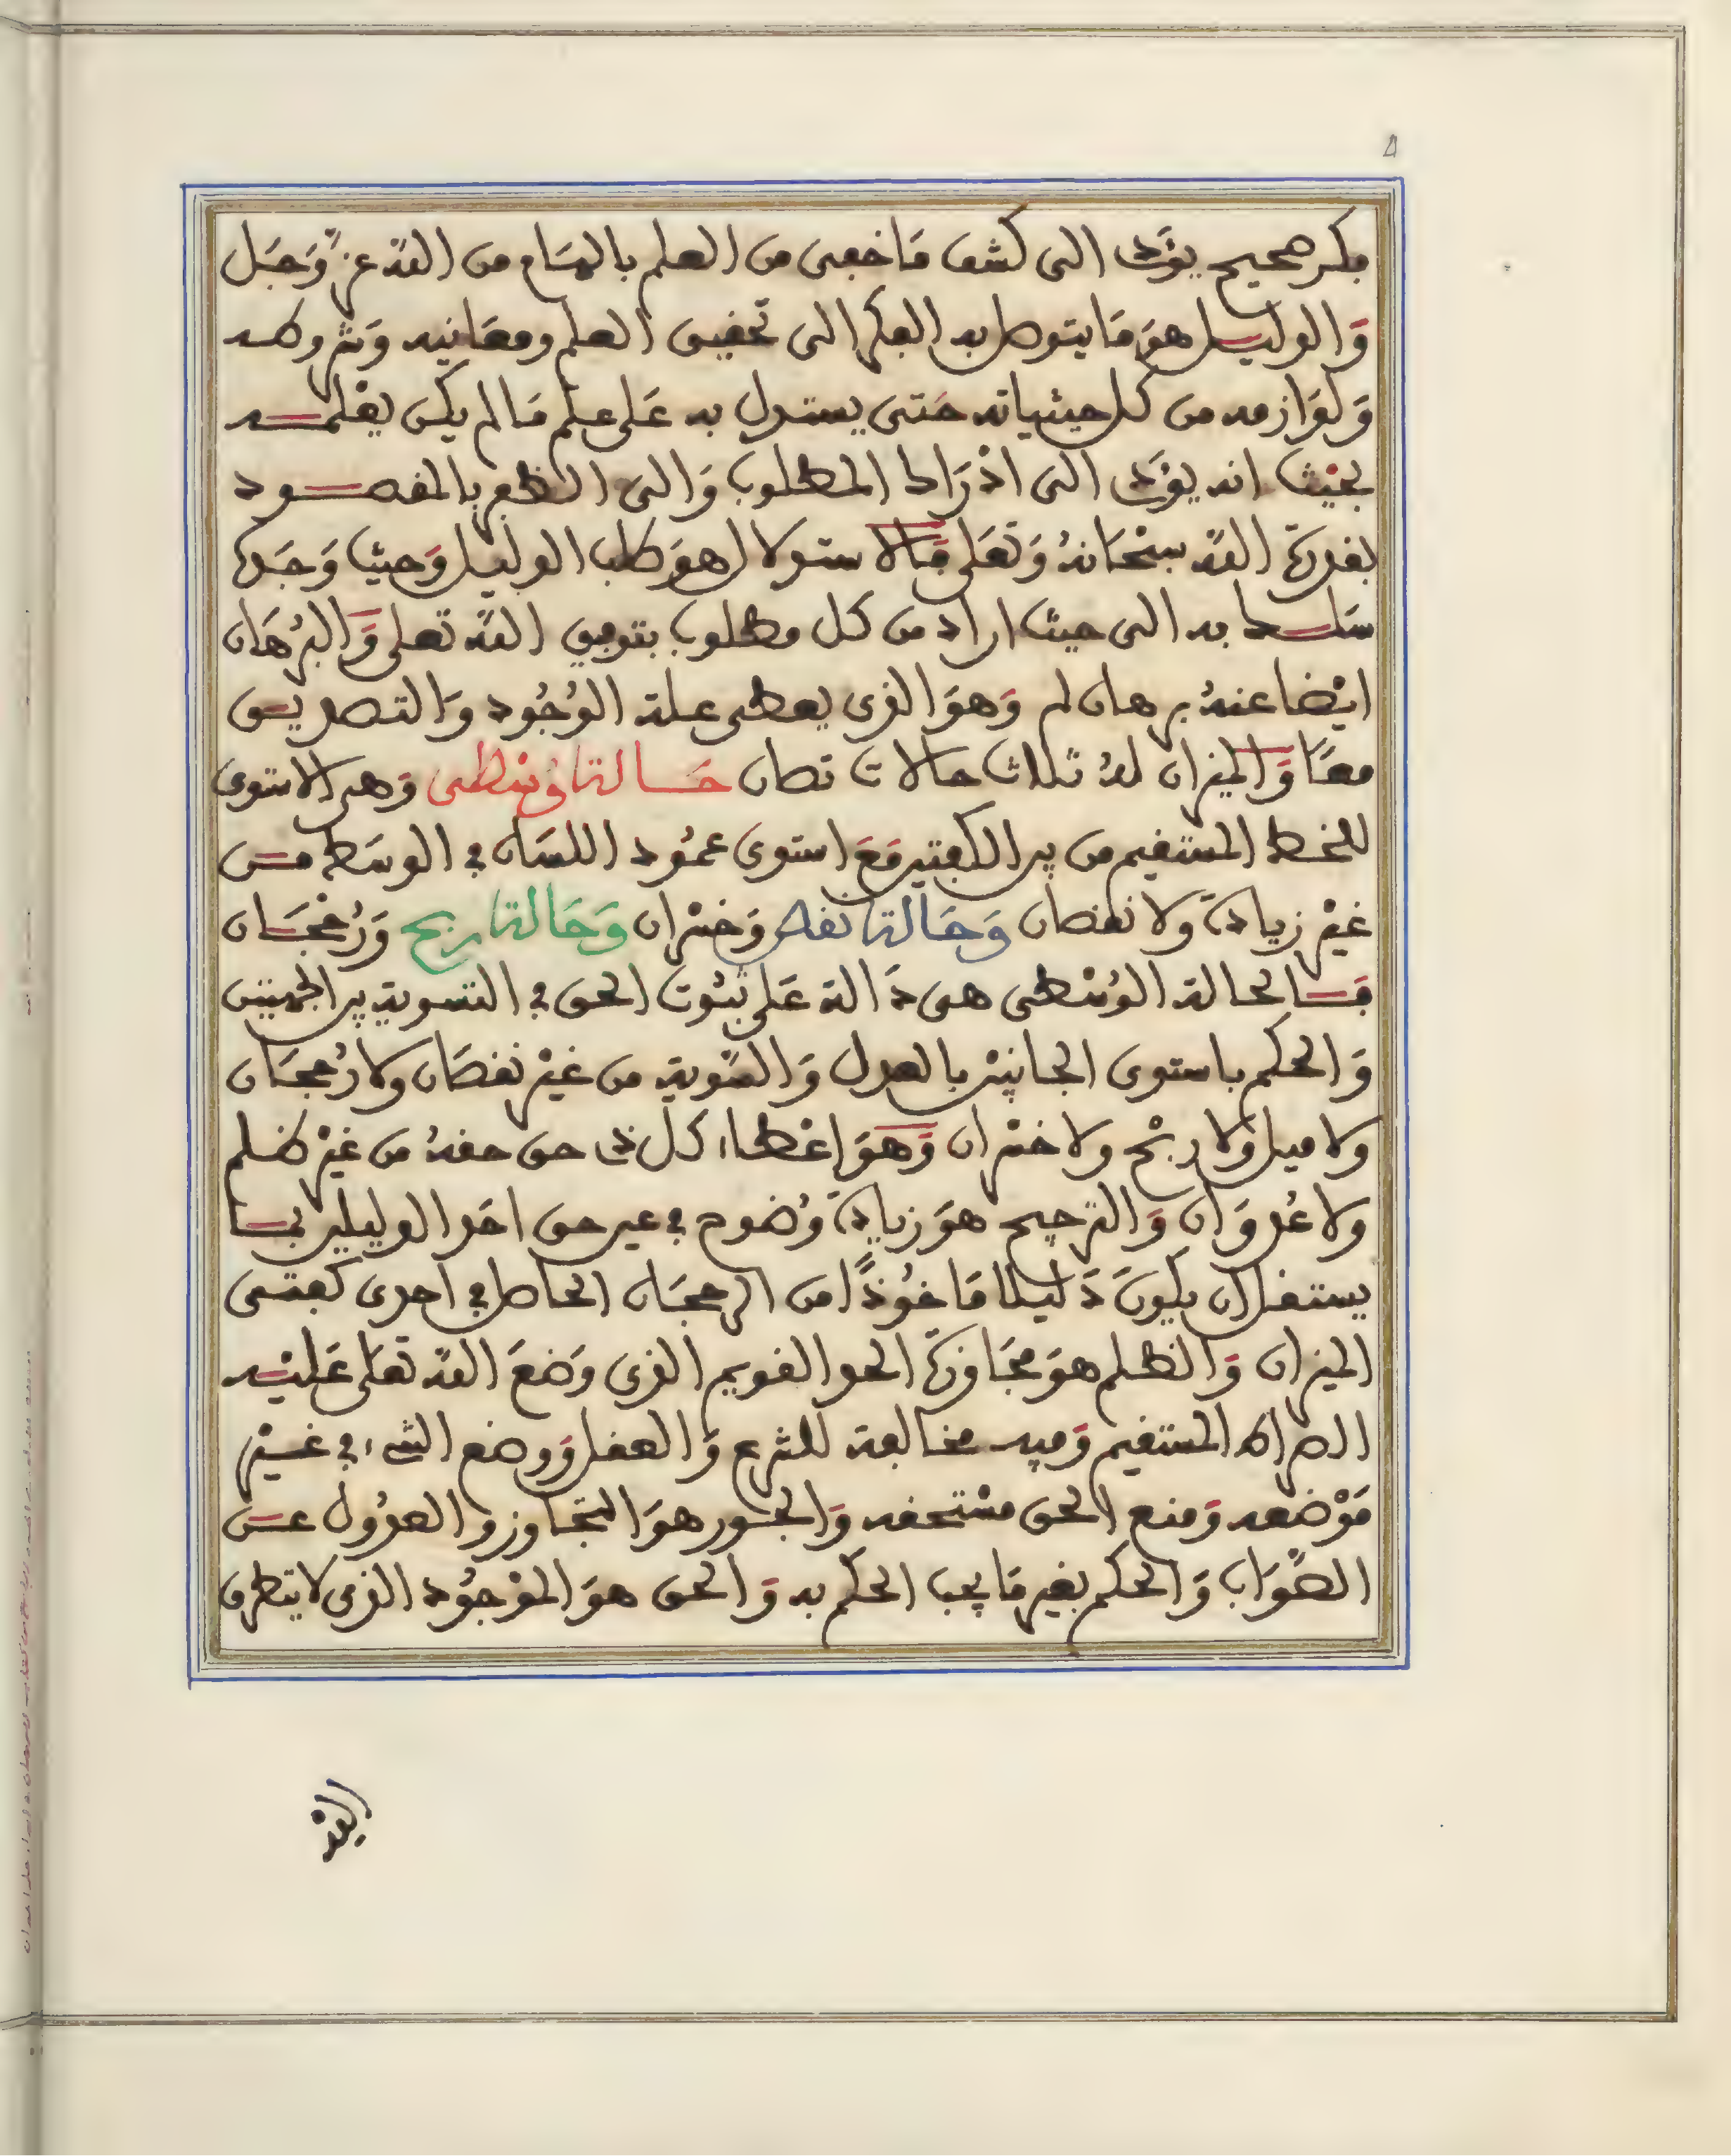 فكر صحيح يؤدى الى كشف مَا خفى من العلم بالهَام من الله عزّ وَجَل
وَالدليل هوَ مَا يتوصل به الفكر الى تحقيق العلم ومعَانيه وَشروطه
وَلوَازمه من كل حيثياته حَتى يستدل به عَلى علم مَا لم يكن يعْلمه
بحيْث انه يؤدى الى ادْرَاك المطلوب وَالى الظفر بالمقصود
بقدرة الله سبْحَانهُ وَتعَلى فَالاستدلال هوَ طلب الدليل وَحيث وَجَده
سَلك به الى حيث اراد من كل مطلوب بتوفيق الله تعلى وَالبرُهَان
ايْضا عندهُ برهان لم وَهوَ الذى يعطى علة الوُجُود وَالتصديق
معًا وَالميزان لهُ ثلاث حالات تصان حَالة وُسْطى وَهى الاستوى
للخط المستقيم من بين الكفتين مَعَ استوى عمُود اللسَان فى الوسَط من
غيْر زيادة وَلا نقصان وَحَالة نقص وَخسْران وَحَالة ربح وَرُجْحَان
فَالحالة الوُسْطى هى دَالة عَلى ثبُوت الحق فى التسوية بين الجهتين
وَالحكم باستوى الجانبيْن بالعدل وَالسَّوية من غيْر نقصَان ولا رُجحَان
ولا ميل وَلا ربْح ولا خسْران وَهوَ اعْطاء كل ذى حق حقهُ من غيْر ظلم
ولا عُدوَان وَالترجيح هوَ زيادة وُضوح فى عين حق احَد الدليلين بما
يستقل ان يكونَ دَليلا مَاخُوذًا من الرجحَان الحاصل فى احدى كفتى
الميزان وَالظلم هوَ مجَاوزة الحد القويم الذى وَضعَ الله تعَلى عَليْه
الصراط المستقيم وَفيه مخالفة للشرع وَالعقل وَوضع الشىء فى غيْر
مَوْضعه وَمنع الحق مسْتحقه وَالجور هوَ التجَاوز والعدُول عن
الصَّوَاب وَالحكم بغير مَا يجب الحكم به وَالحق هوَ الموْجُود الذى لا يتطرق
اليْه